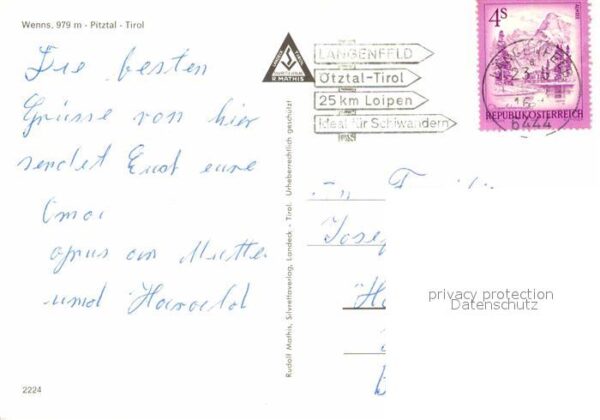 Wenns, 979 m - Pitztal - Tirol
Die besten
Grüsse von hier
sendet Euch eure
Oma
an Mutter
und Harald
2224
Rudolf Mathis, Silvrettaverlag, Landeck - Tirol. Urheberrechtlich geschützt
R. MATHIS
LÄNGENFELD
Ötztal-Tirol
25 km Loipen
Ideal für Schiwandern
4S
REPUBLIK ÖSTERREICH
6444
Josef
privacy protection
Datenschutz